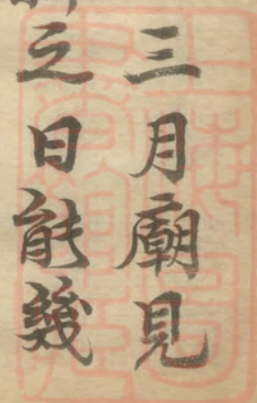 三月廟見
之日能幾